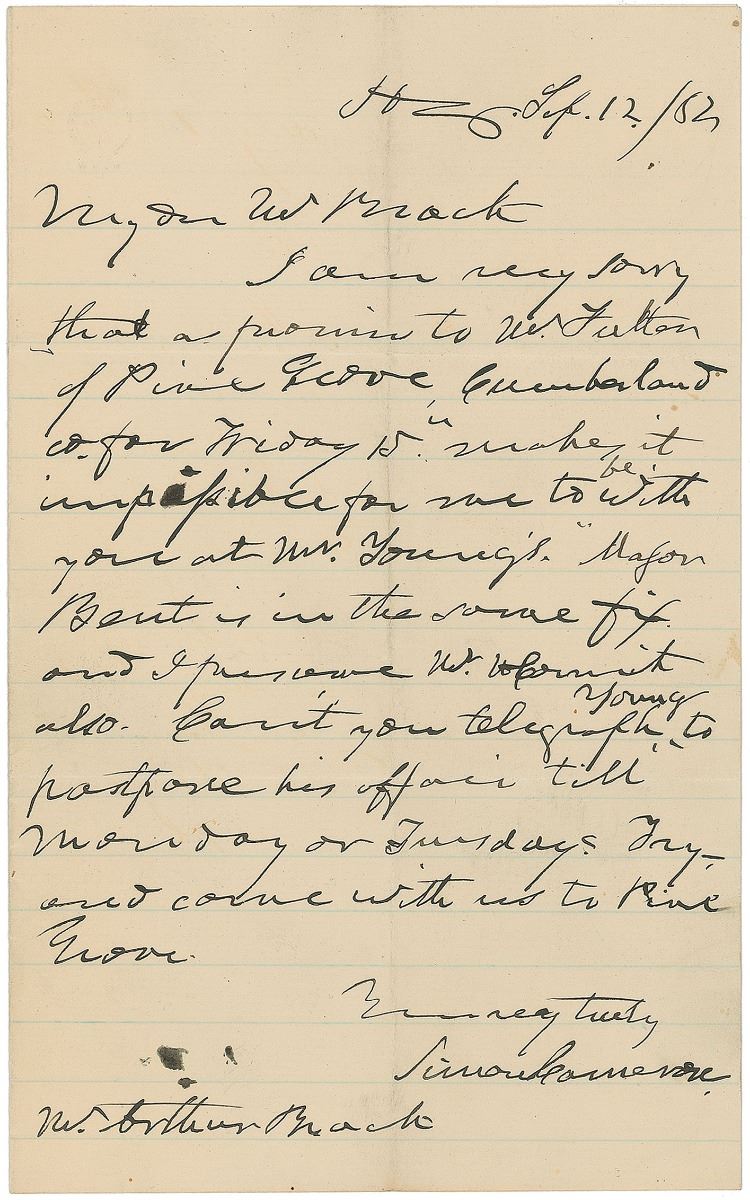 Hbg. Sep. 12 /82
My dr Mr Brock
I am very sorry
that a promise to Mr. Fuller
of Pine Grove, Cumberland
co. for Friday 15." makes it
impossible for me to be with
you at Mr. Young's. Major
Bent is in the same fix
and I presume Mr.
also. Can't you telegraph Young to
postpone his affair till
Monday or Tuesday? Try,
and come with us to Pine
Grove.
Yours very truly
Simon Cameron
Mr. Arthur Brock